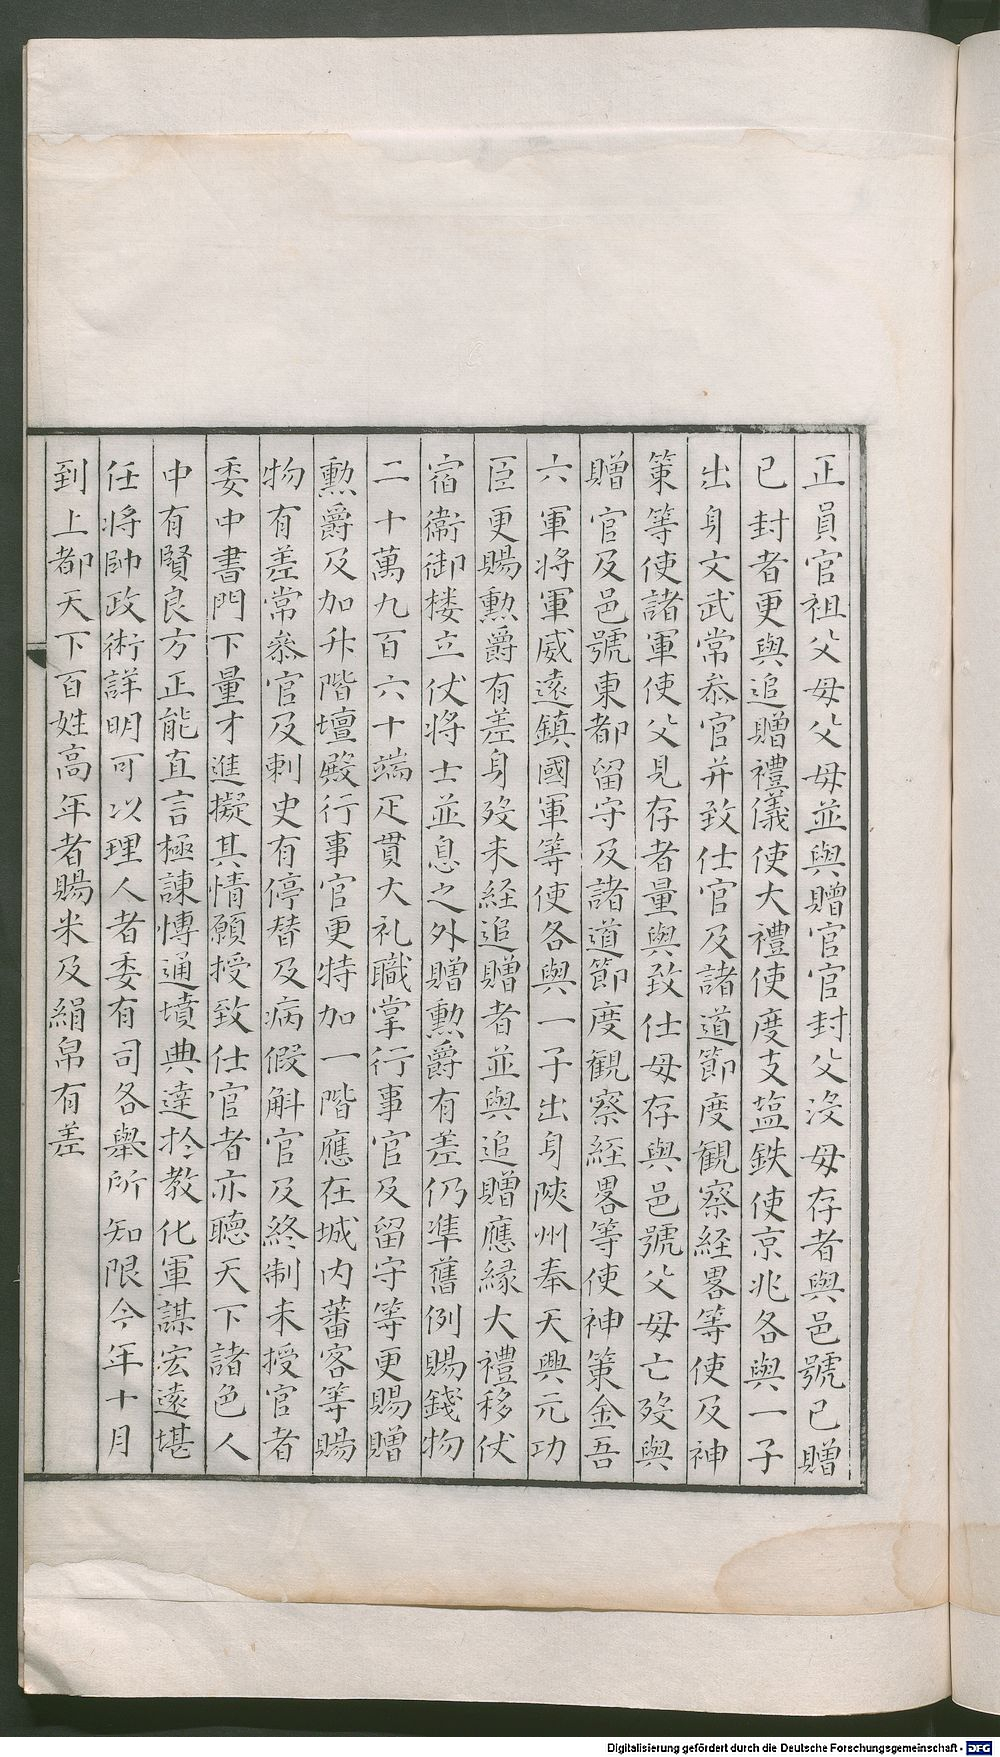 正員官祖父母父母並與贈官官封父沒母存者與邑號已贈
已封者更與追贈禮儀使大禮使度支塩鉄使京兆各與一子
出身文武常叅官并致仕官及諸道節度観察経畧等使及神
策等使諸軍使父見存者量與致仕母存與邑號父母亡歿與
贈官及邑號東都留守及諸道節度観察経畧等使神策金吾
六軍将軍威遠鎮國軍等使各與一子出身陝州奉天興元功
臣更賜勲爵有差身歿未経追贈者並與追贈應緣大禮移仗
宿衛御楼立仗将士並息之外贈勲爵有差仍準舊例賜錢物
二十萬九百六十端疋貫大礼職掌行事官及留守等更賜贈
勲爵及加升階壇殿行事官更特加一階應在城内蕃客等賜
物有差常叅官及刺史有停替及病假解官及終制未授官者
委中書門下量才進擬其情願授致仕官者亦聽天下諸色人
中有賢良方正能直言極諫愽通墳典達扵教化軍謀宏遠堪
任将帥政術詳明可以理人者委有司各舉所知限今年十月
到上都天下百姓高年者賜米及絹帛有差
Digitalisierung gefördert durch die Deutsche Forschungsgemeinschaft - DFG